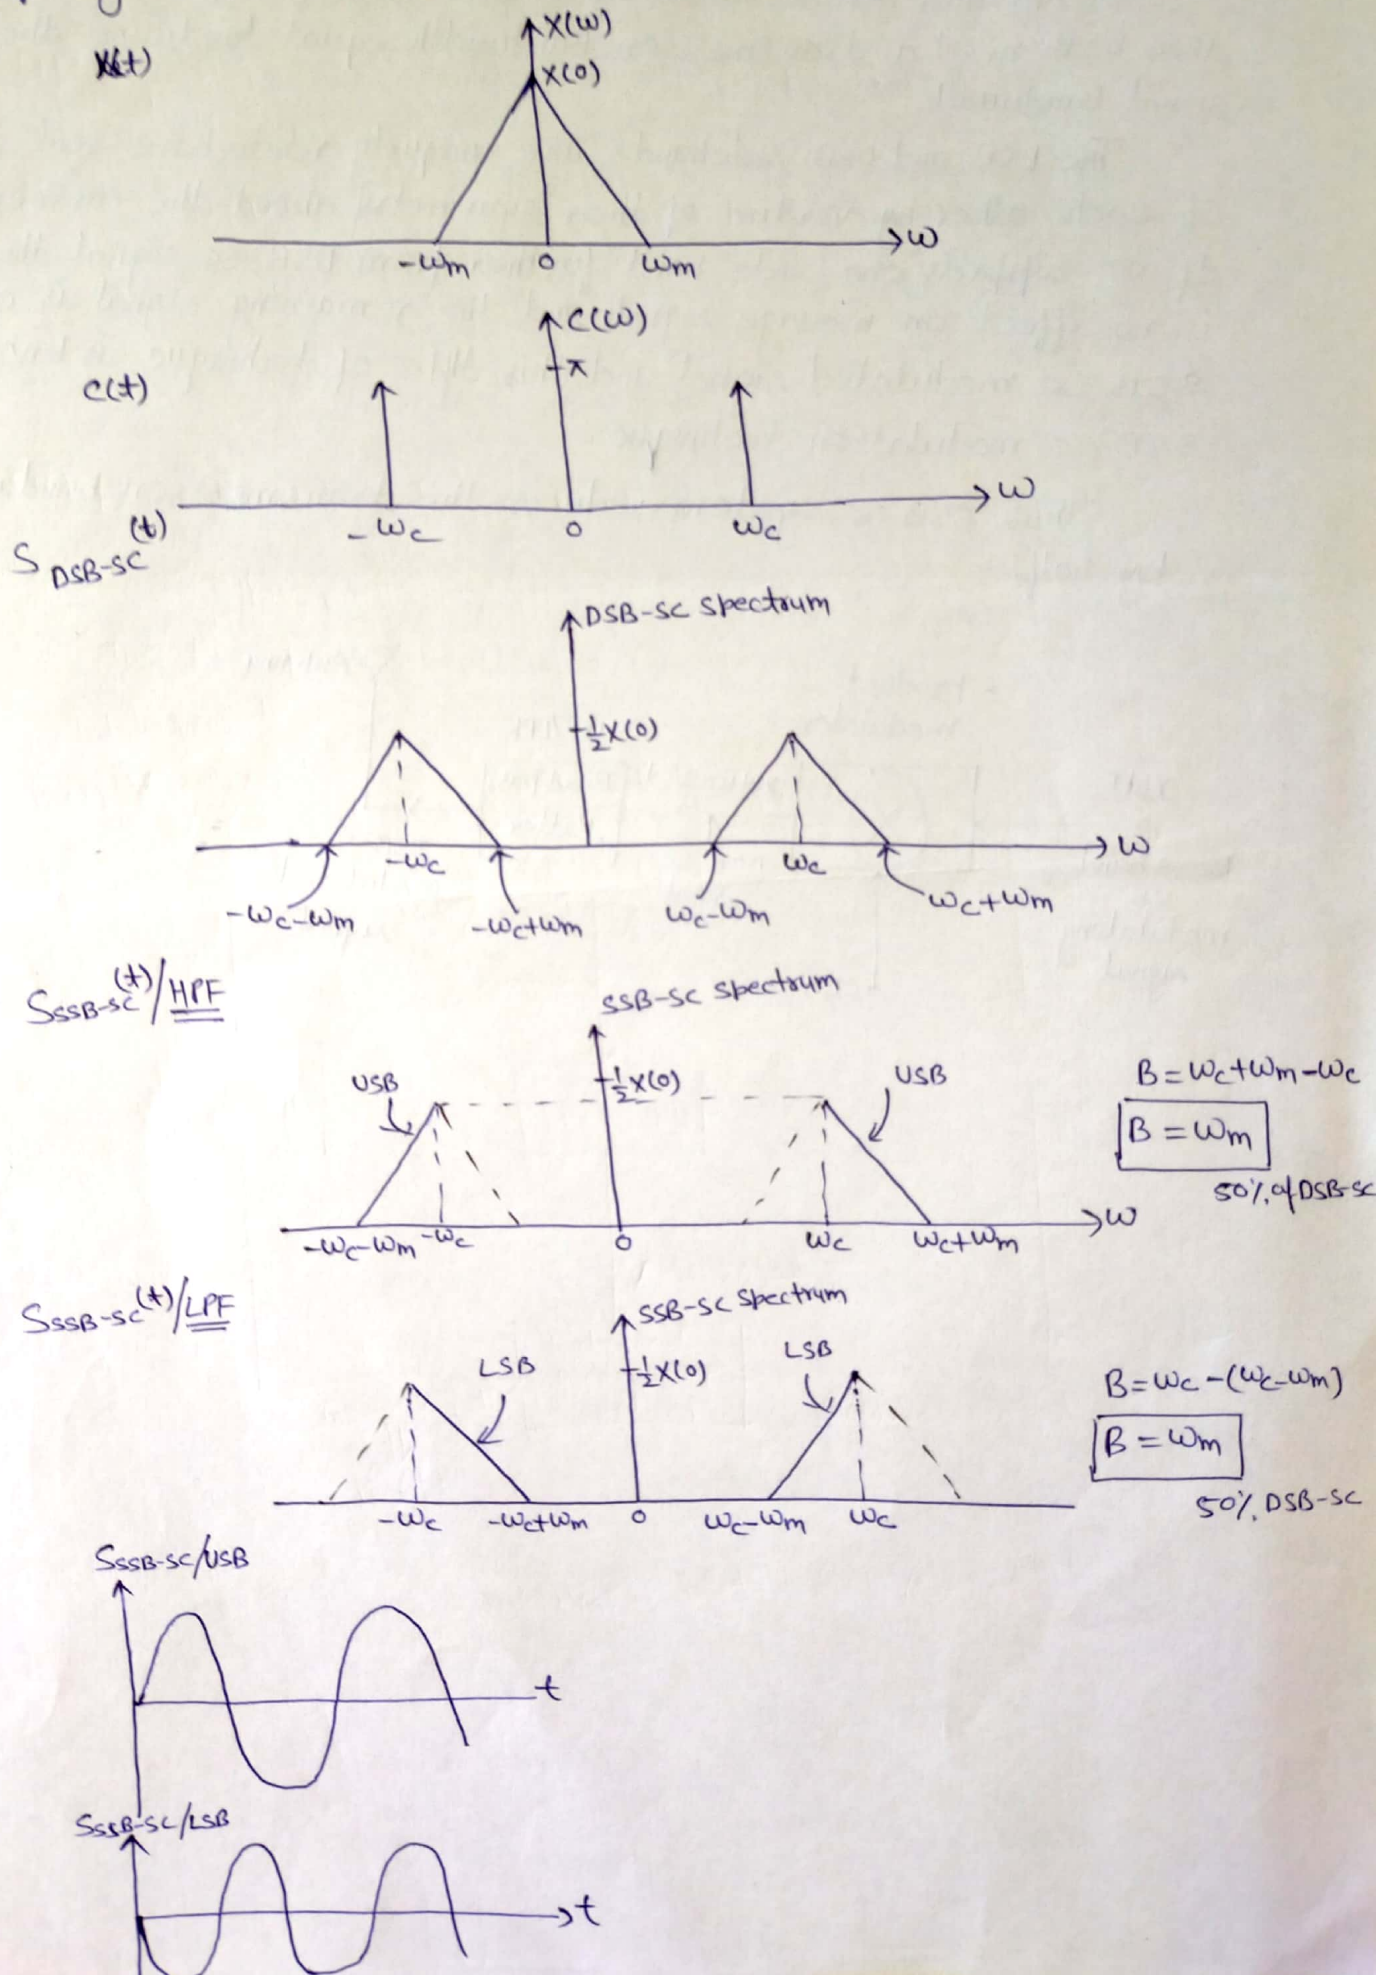 X(t)
X(ω)
X(0)
-ωm 0 ωm ω
C(t)
C(ω)
π
-ωc 0 ωc ω
S DSB-SC (t)
DSB-SC spectrum
½X(0)
-ωc ωc ω
-ωc-ωm -ωc+ωm ωc-ωm ωc+ωm
S SSB-SC (t)/HPF
SSB-SC spectrum
USB ½X(0) USB
B = ωc+ωm-ωc
B = ωm
50% of DSB-SC
-ωc-ωm -ωc 0 ωc ωc+ωm ω
S SSB-SC (t)/LPF
SSB-SC spectrum
LSB ½X(0) LSB
B = ωc-(ωc-ωm)
B = ωm
50% DSB-SC
-ωc -ωc+ωm 0 ωc-ωm ωc
S SSB-SC/USB
t
S SSB-SC/LSB
t